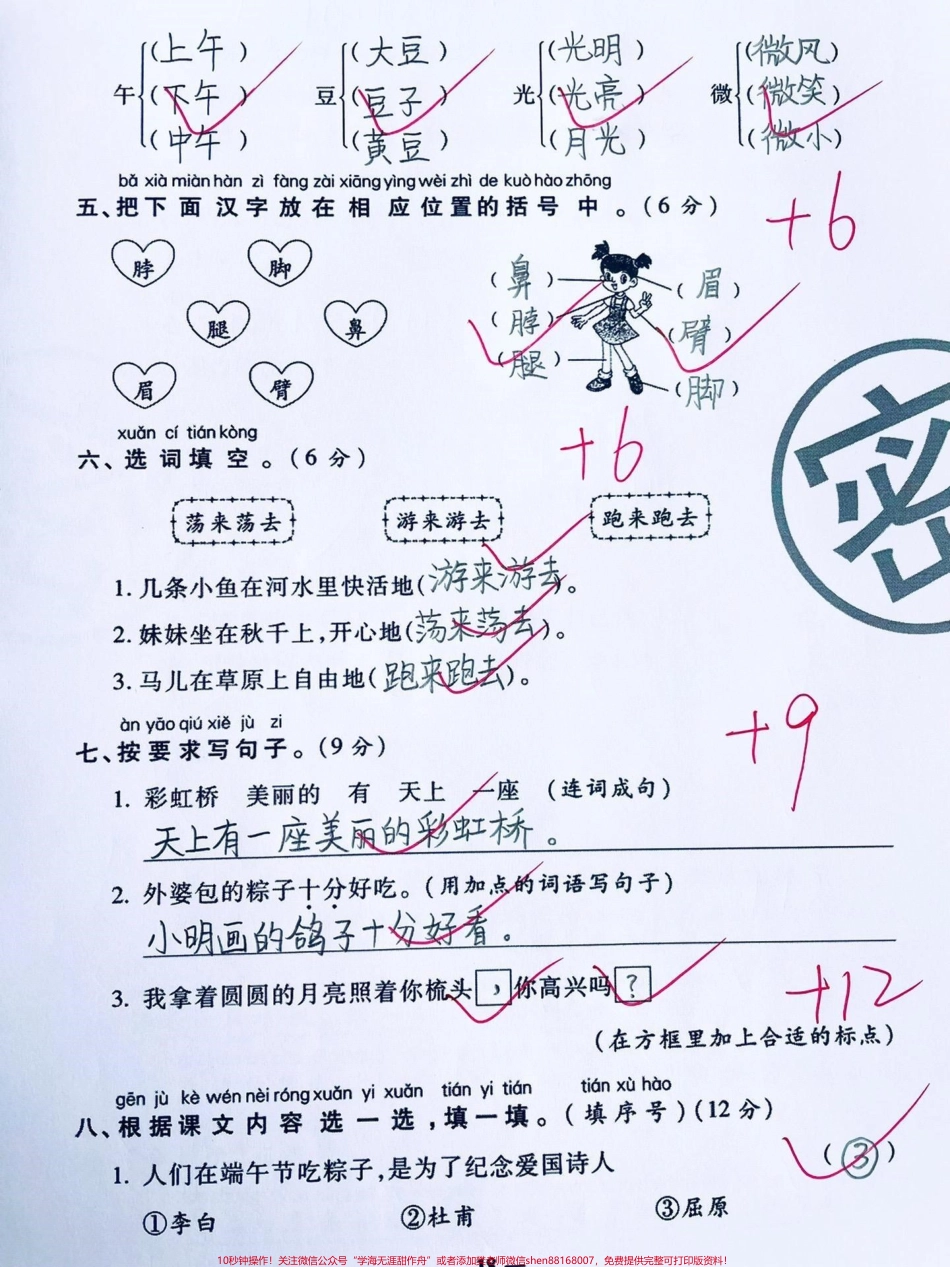 (上午) (大豆) (光明) (微风)
午{(下午) 豆{(豆子) 光{(光亮) 微{(微笑)
(中午) (黄豆) (月光) (微小)
bǎ xià miàn hàn zì fàng zài xiāng yìng wèi zhì de kuò hào zhōng
五、把下面汉字放在相应位置的括号中。(6分) +6
脖 脚
腿 鼻
眉 臂
(鼻) (眉)
(脖) (臂)
(腿) (脚)
xuǎn cí tián kòng
六、选词填空。(6分) +6
荡来荡去 游来游去 跑来跑去
1. 几条小鱼在河水里快活地(游来游去)。
2. 妹妹坐在秋千上,开心地(荡来荡去)。
3. 马儿在草原上自由地(跑来跑去)。
àn yāo qiú xiě jù zi
七、按要求写句子。(9分) +9
1. 彩虹桥 美丽的 有 天上 一座 (连词成句)
天上有一座美丽的彩虹桥。
2. 外婆包的粽子十分好吃。(用加点的词语写句子)
小明画的鸽子十分好看。
3. 我拿着圆圆的月亮照着你梳头,你高兴吗? +12
(在方框里加上合适的标点)
gēn jù kè wén nèi róng xuǎn yi xuǎn tián yi tián tián xù hào
八、根据课文内容选一选,填一填。(填序号)(12分)
1. 人们在端午节吃粽子,是为了纪念爱国诗人 (③)
①李白 ②杜甫 ③屈原
密